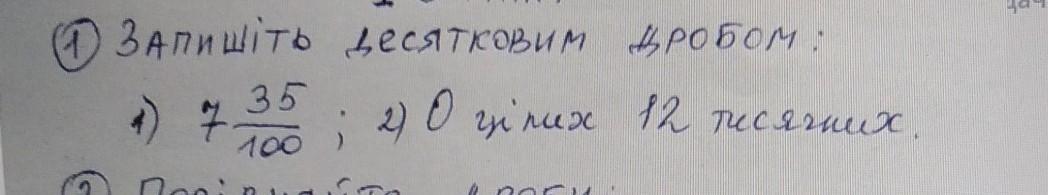 ① Запишіть десятковим дробом:
1) 7 35/100 ; 2) 0 цілих 12 тисячних.